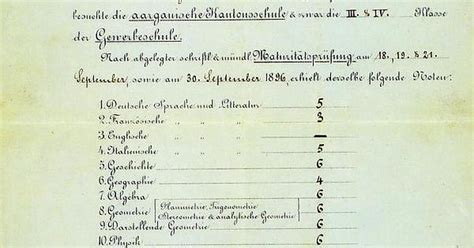 besuchte die aargauische Kantonsschule & zwar die III. & IV. Klasse
der Gewerbeschule.
Nach abgelegter schriftl. & mündl. Maturitätsprüfung am 18., 19. & 21.
September, sowie am 30. September 1896, erhielt derselbe folgende Noten:
1. Deutsche Sprache und Litteratur 5
2. Französische " " " 3
3. Englische " " " —
4. Italienische " " " 5
5. Geschichte 6
6. Geographie 4
7. Algebra 6
8. Geometrie (Planimetrie, Trigonometrie 6
Stereometrie & analytische Geometrie)
9. Darstellende Geometrie 6
10. Physik 6